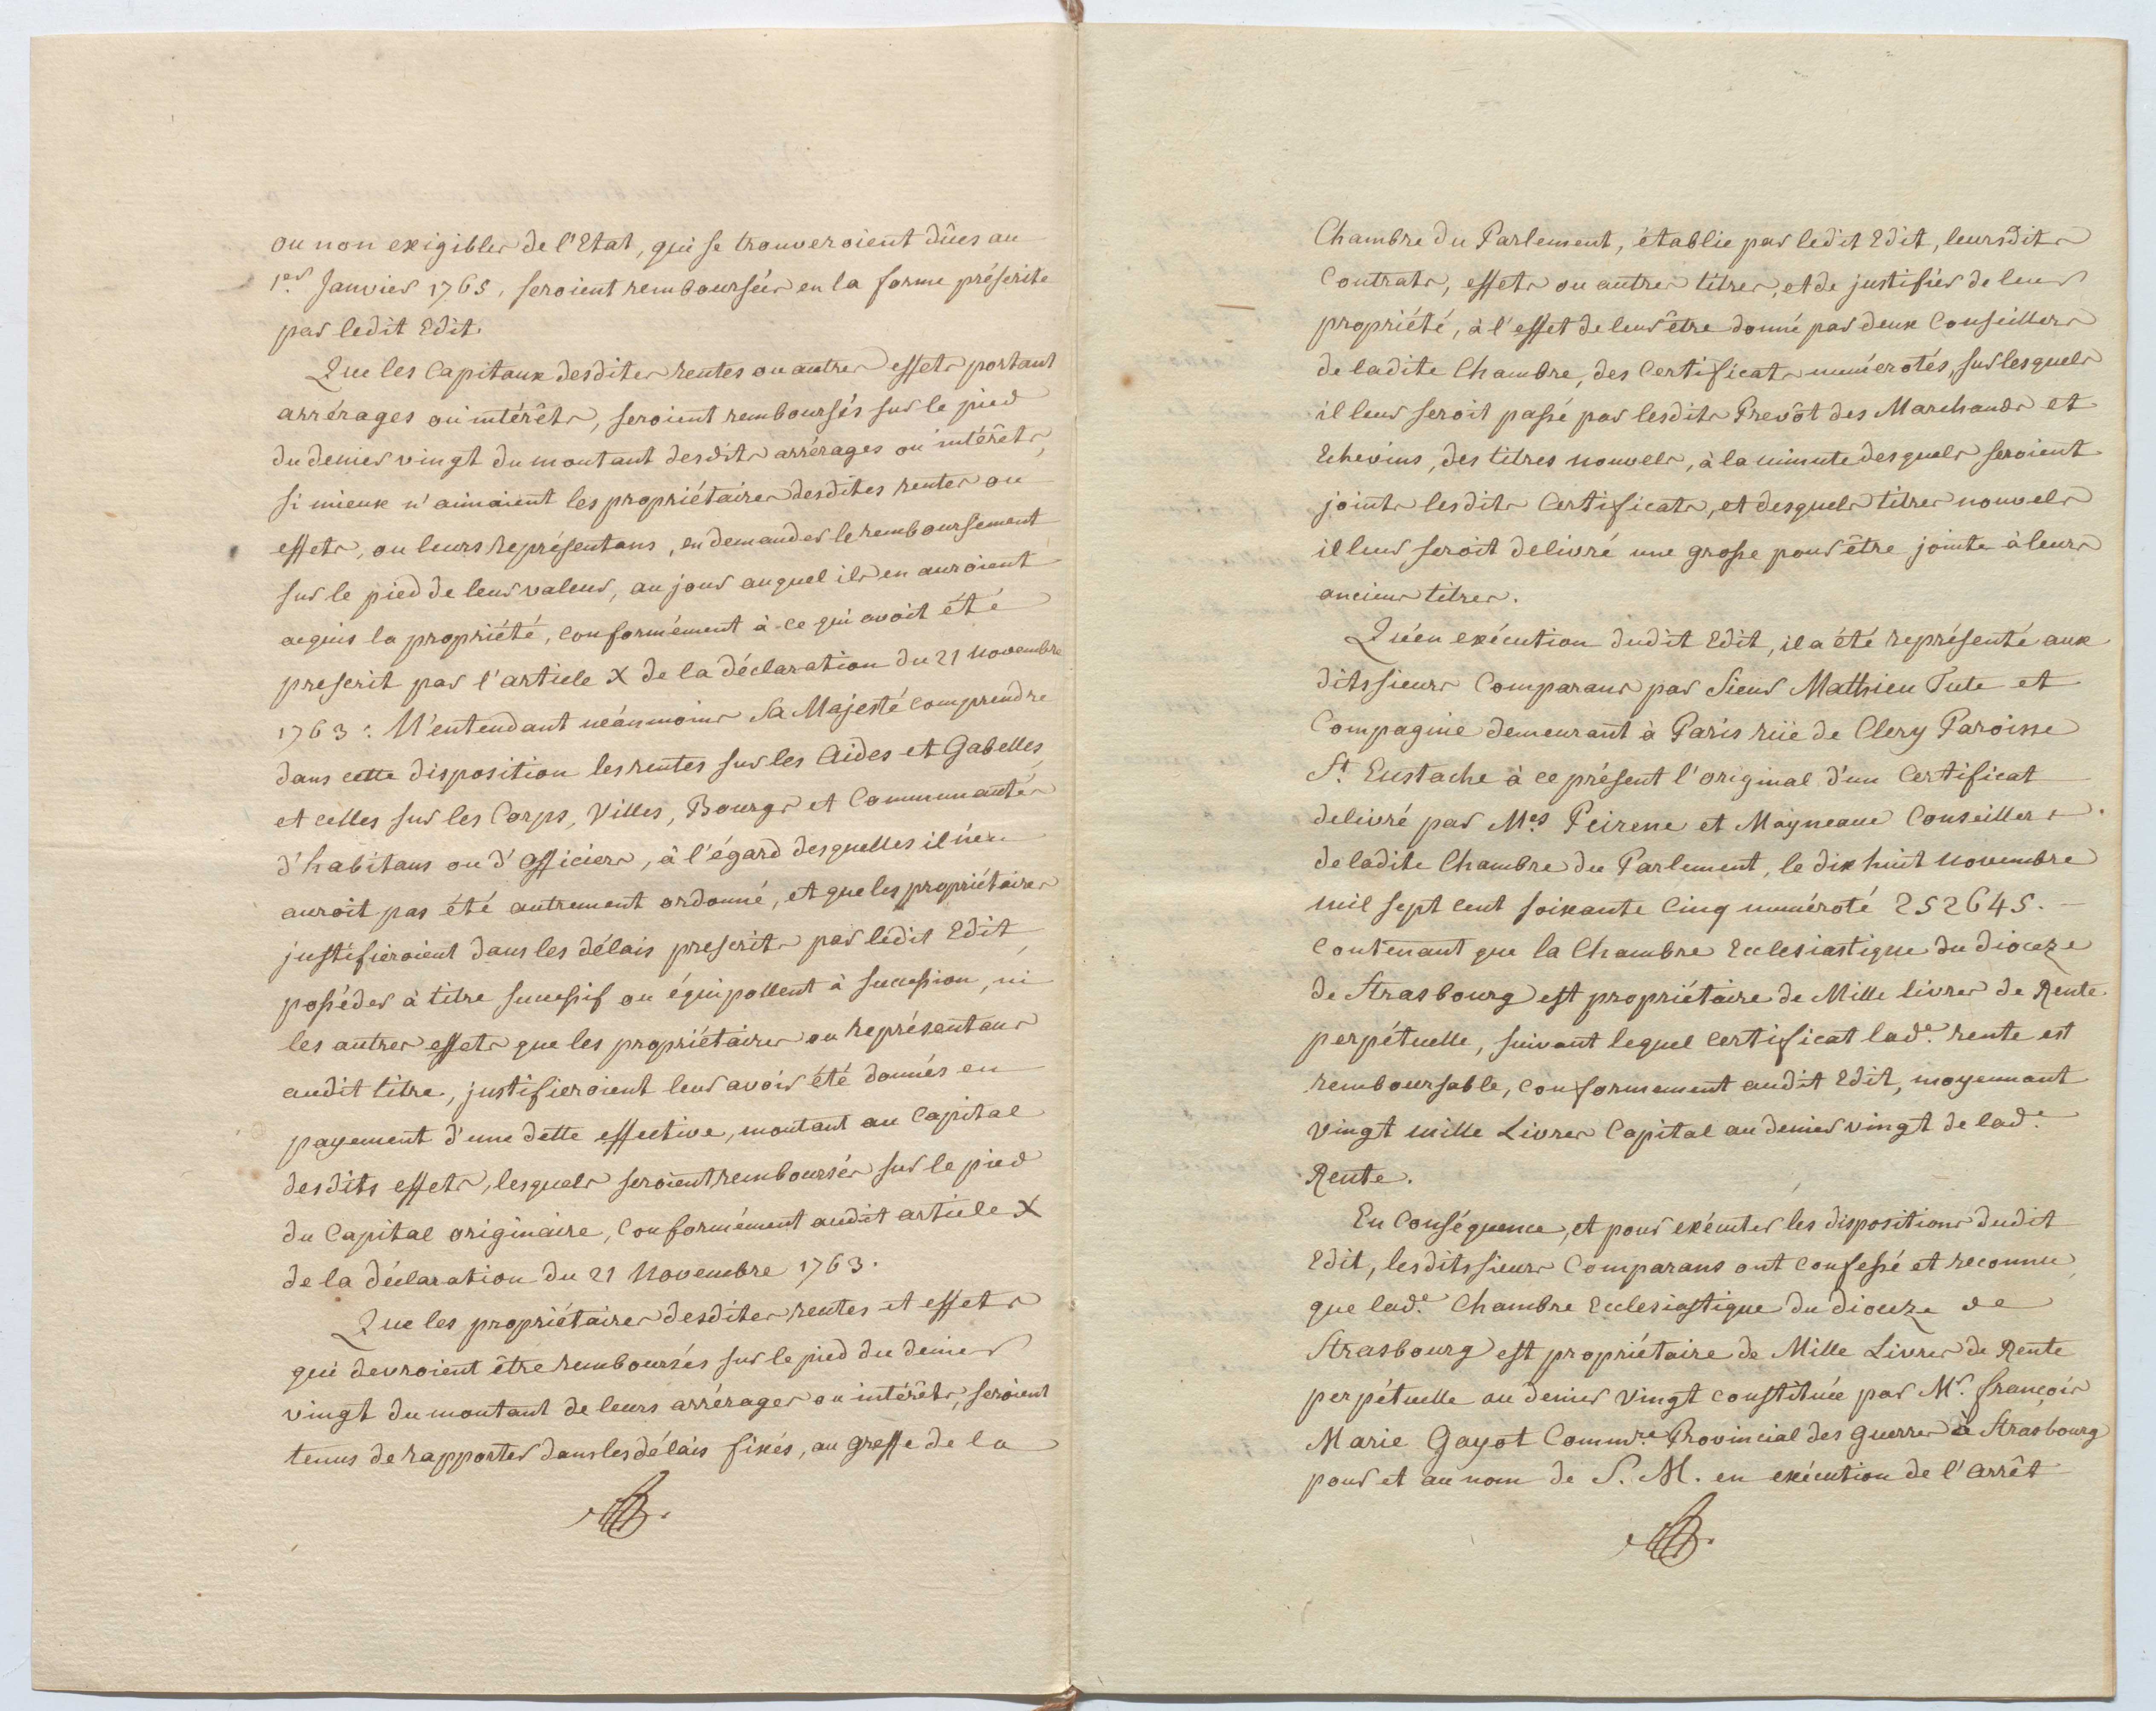 ou non exigibles de l'Etat, qui se trouveroient dûes au
1er. Janvier 1765, seroient remboursées en la forme préscrite
par ledit Edit.
Que les Capitaux desdites rentes ou autres effets portant
arrérages ou intérêts, seroient remboursés sur le pied
du denier vingt du montant desdits arrérages ou intérêts,
si mieux n'aimaient les propriétaires desdites rentes ou
effets, ou leurs représentans, en demander le remboursement
sur le pied de leur valeur, au jour auquel ils en auroient
acquis la propriété, conformément à ce qui avoit été
prescrit par l'article X de la déclaration du 21 Novembre
1763: N'entendant néanmoins Sa Majesté comprendre
dans cette disposition les rentes sur les Aides et Gabelles,
et celles sur les Corps, Villes, Bourgs et Communautés
d'habitans ou d'officiers, à l'égard desquelles il n'en
auroit pas été autrement ordonné, et que les propriétaires
justifieroient dans les délais prescrits par ledit Edit,
posséder à titre successif ou équipollent à succession, ni
les autres effets que les propriétaires ou représentans
audit titre, justifieroient leur avoir été donnés en
payement d'une dette effective, montant au Capital
desdits effets, lesquels seroient remboursés sur le pied
du Capital originaire, conformément audit article X
de la déclaration du 21 Novembre 1763.
Que les propriétaires desdites rentes et effets
qui devroient être remboursés sur le pied du denier
vingt du montant de leurs arrérages ou intérêts, seroient
tenus de rapporter dans les délais fixés, au greffe de la
Chambre du Parlement, établie par ledit Edit, leursdits
Contrats, effets ou autres titres, et de justifier de leur
propriété, à l'effet de leur être donné par deux Conseillers
de ladite Chambre, des Certificats numérotés, sur lesquels
il leur seroit passé par lesdits Prevôt des Marchands et
Echevins, des titres nouvels, à la minute desquels seroient
joints lesdits Certificats, et desquels titres nouvels
il leur seroit delivré une grosse pour être jointe à leurs
anciens titres.
Qu'en exécution dudit Edit, il a été représenté aux
dits sieurs Comparans par Sieur Mathieu Tute et
Compagnie demeurant à Paris rüe de Clery Paroisse
St. Eustache à ce présent l'original d'un Certificat
delivré par Mes. Peirene et Mayneaue Conseillers
de ladite Chambre du Parlement, le dix huit novembre
mil sept cent soixante Cinq numéroté 252645. —
Contenant que la Chambre Ecclesiastique du dioceze
de Strasbourg est propriétaire de Mille livres de Rente
perpétuelle, suivant lequel Certificat lade. rente est
remboursable, conformement audit Edit, moyennant
Vingt mille Livres Capital au denier vingt de lade.
Rente.
En Conséquence, et pour exécuter les dispositions dudit
Edit, lesdits sieurs Comparans ont confessé et reconnu
que lade. Chambre Ecclesiastique du dioceze de
Strasbourg est propriétaire de Mille Livres de Rente
perpétuelle au denier Vingt constituée par Mr. françois
Marie Gayot Commre. Provincial des Guerres à Strasbourg
pour et au nom de S. M. en exécution de l'Arrêt